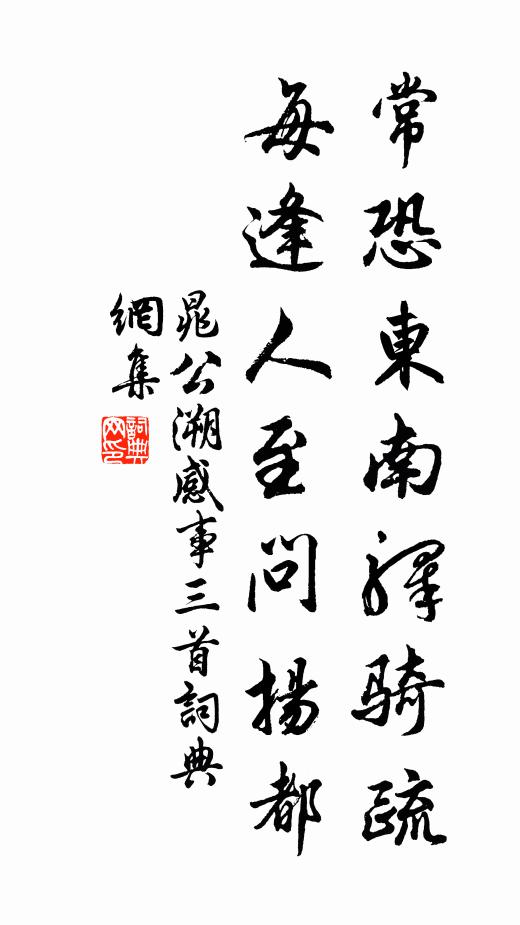 常恐東南驛騎疏
每逢人至問揚都
晁公溯感事三首詞典
網集
詞典网印